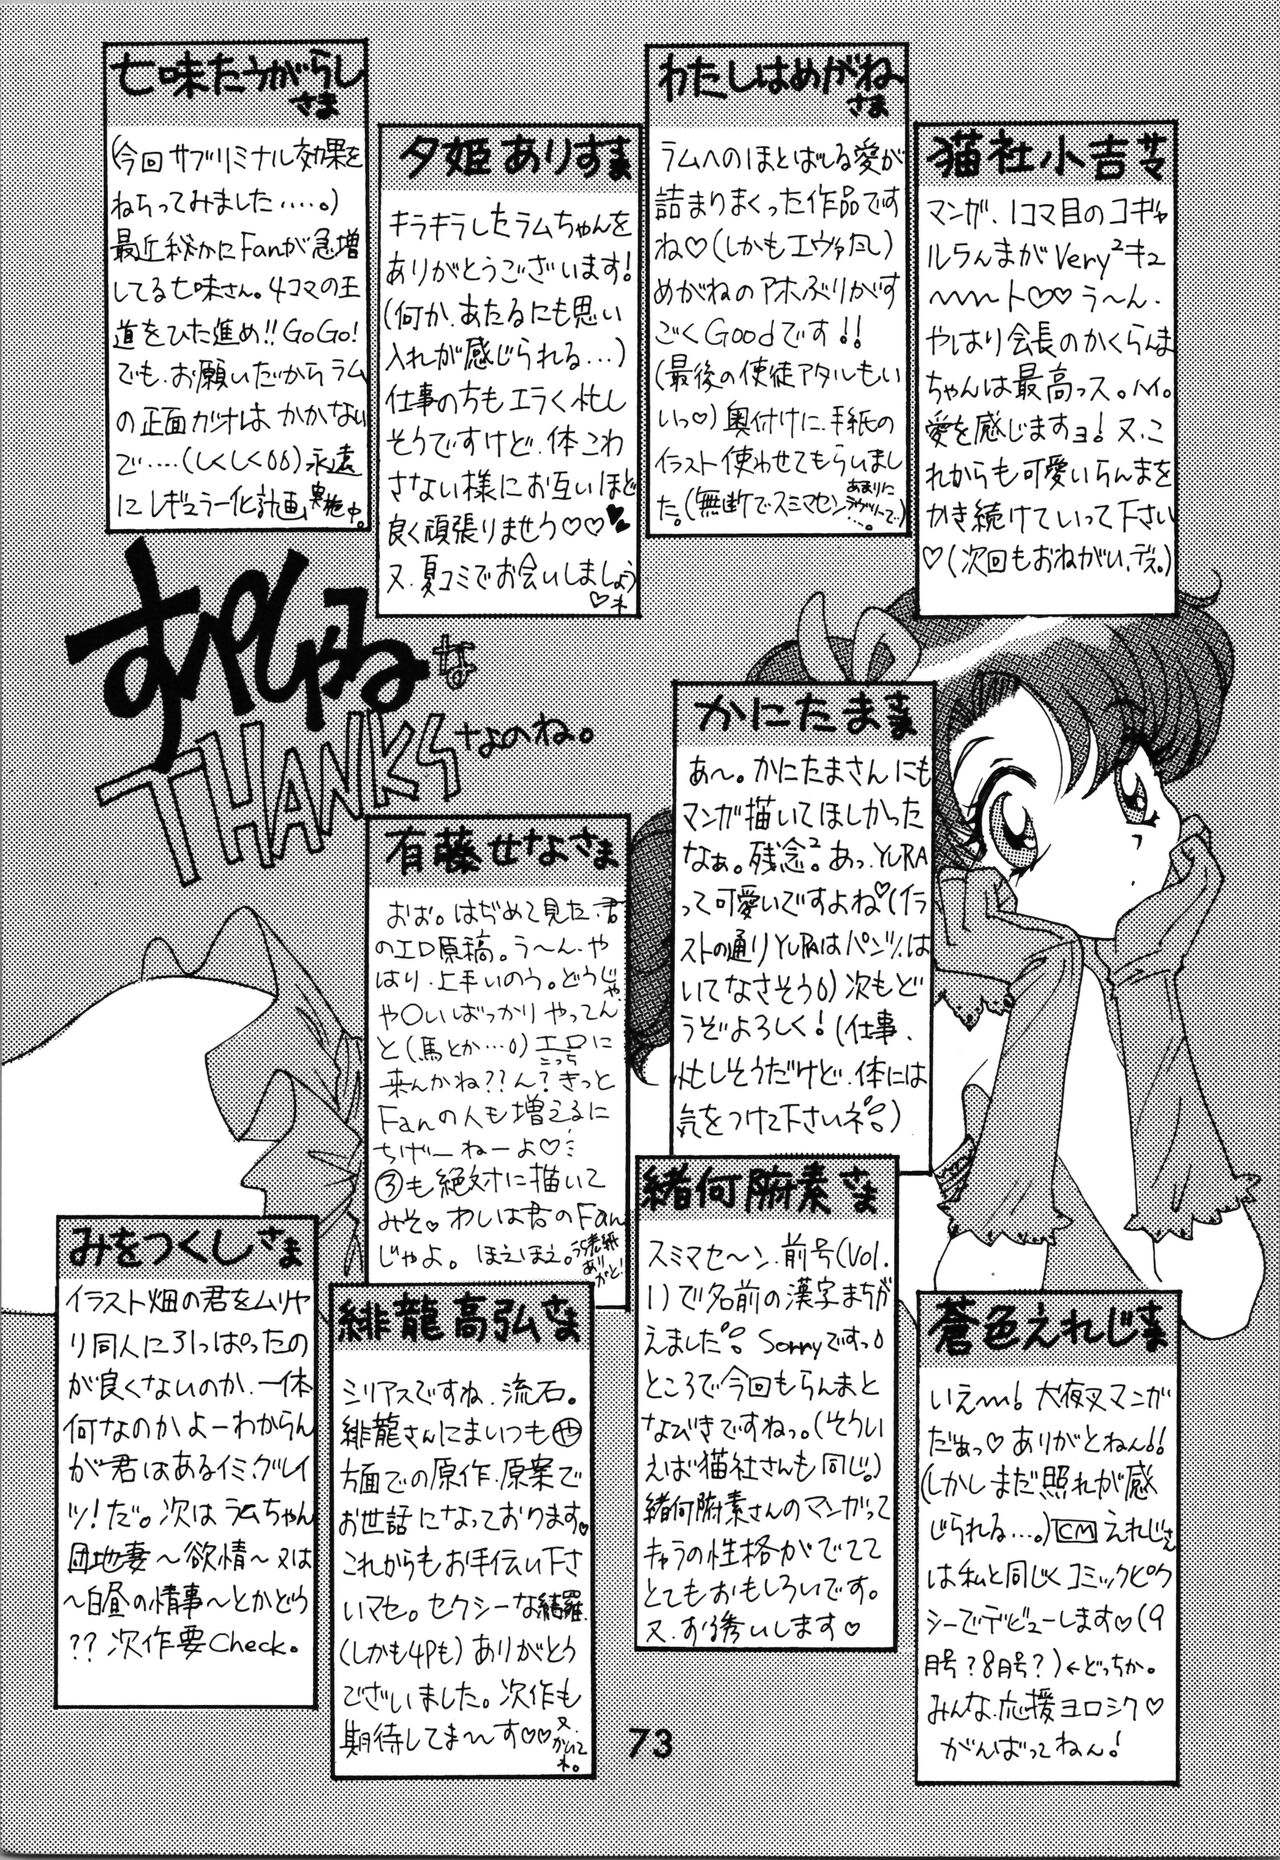 七味たうがらし
さま
(今回サブリミナル効果を
ねらってみました・・・・・。)
最近秘かにFanが急増
してる七味さん。4コマの王
道をひた進め!!GoGo!
でも、お願いだからラム
の正面ガオはかかない
で‥‥(しくしく)永遠
にレギュラー化計画実施中。
夕姫ありすさま
キラキラしたラムちゃんを
ありがとうございます!
(何か、あたるにも思い
入れが感じられる…)
仕事の方もエラく忙し
そうですけど、体こわ
さない様にお互いほど
良く頑張りませう♡♡♥
又、夏コミでお会いしましょう
♡ネ
わたしはめがね
さま
ラムへのほとばしる愛が
詰まりまくった作品です
ね♡(しかもエヴァだし)
めがねのアホぶりがす
ごくGoodです!!
(最後の使徒アタルもい
いっ♡)奥付けに、手紙の
イラスト使わせてもらいまし
た。(無断でスミマセン
あまりに
ラヴリィで)
…。
猫社小吉サマ
マンガ、1コマ目のコギャ
ルらんまがVery²キュ
〜〜〜ト♡♡う〜ん、
やはり会長のかくらんま
ちゃんは最高っス。ハイ。
愛を感じますヨ!又、こ
れからも可愛いらんまを
かき続けていって下さい
♡(次回もおねがい、デス。)
すぺしゃるな
THANKSなのね。
かにたまさま
あ〜。かにたまさんにも
マンガ描いてほしかった
なぁ。残念²。あっ、YURA
って可愛いですよね♡(イラ
ストの通りYURAはパンツは
いてなさそう)次もど
うぞよろしく!(仕事、
忙しそうだけど、体には
気をつけて下さいネ)
有藤せなさま
おお。はぢめて見た、君
のエロ原稿。う〜ん、や
はり、上手いのう。どうじゃ、
や○いばっかりやってん
と(馬とか…)エロに
こっち
来んかね??ん?きっと
Fanの人も増えるに
ちげーねーよ♡
③も絶対に描いて
みそ♥わしは君のFan
じゃよ。ほえほえ。
うら表紙
ありがと!
緒何腑素さま
スミマセ〜ン、前号(Vol.
1)で名前の漢字まちが
えました。Sorryですっ
ところで今回もらんまと
なびきですねっ。(そうい
えば猫社さんも同じ。)
緒何腑素さんのマンガって
キャラの性格がでてて
とてもおもしろいです。
又、お誘いします♥
みをつくしさま
イラスト畑の君をムリヤ
リ同人に引っぱったの
が良くないのか、一体
何なのかよーわからん
が君はあるイミ、グレイ
ツ!だ。次はラムちゃん
団地妻〜欲情〜又は
〜白昼の情事〜とかどう
??次作要Check。
緋龍高弘さま
シリアスですね、流石。
緋龍さんにまいつも㋳
方面での原作、原案で
お世話になっております♥
これからもお手伝い下さ
いマセ。セクシーな結羅、
(しかも4Pも)ありがとう
でざいました。次作も
期待してま〜す♡♡
又、
かいて
ネ。
蒼色えれじさま
いえ〜!犬夜叉マンガ
だぁっ♡ありがとねん!!
(しかしまだ照れが感
じられる…。)CMえれじさん
は私と同じくコミックピク
シーでデビューします♡(9
月号?8月号?)←どっちか。
みんな、応援ヨロシク♡
がんばってねん!
73